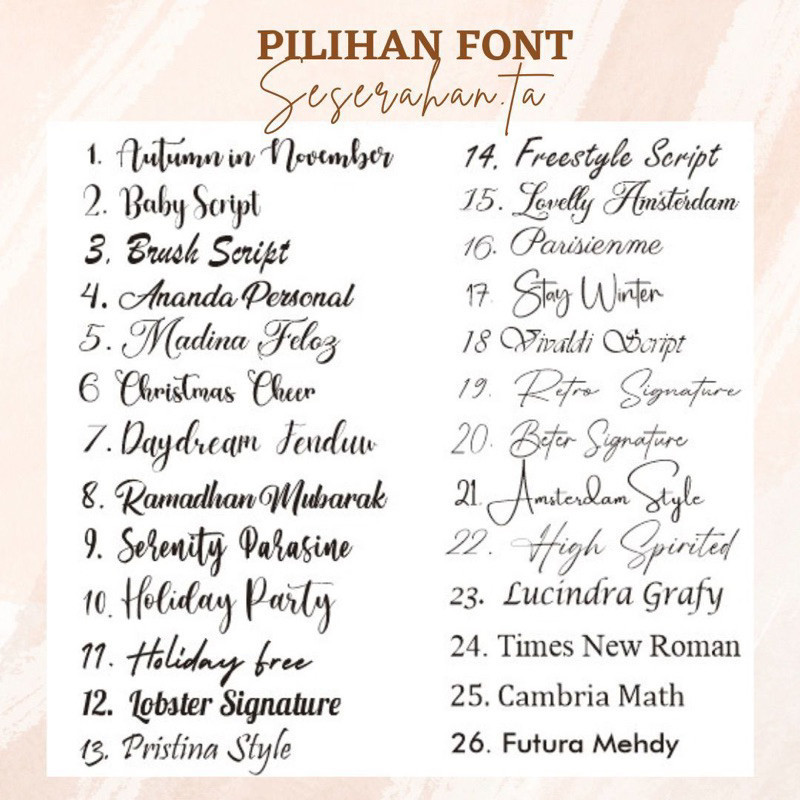 PILIHAN FONT
Seserahan.ta
1. Autumn in November
2. Baby Script
3. Brush Script
4. Ananda Personal
5. Madina Feloz
6 Christmas Cheer
7. Daydream Fenduw
8. Ramadhan Mubarak
9. Serenity Parasine
10. Holiday Party
11. Holiday free
12. Lobster Signature
13. Pristina Style
14. Freestyle Script
15. Lovelly Amsterdam
16. Parisienme
17. Stay Winter
18 Vivaldi Script
19. Retro Signature
20. Beter Signature
21. Amsterdam Style
22. High Spirited
23. Lucindra Grafy
24. Times New Roman
25. Cambria Math
26. Futura Mehdy